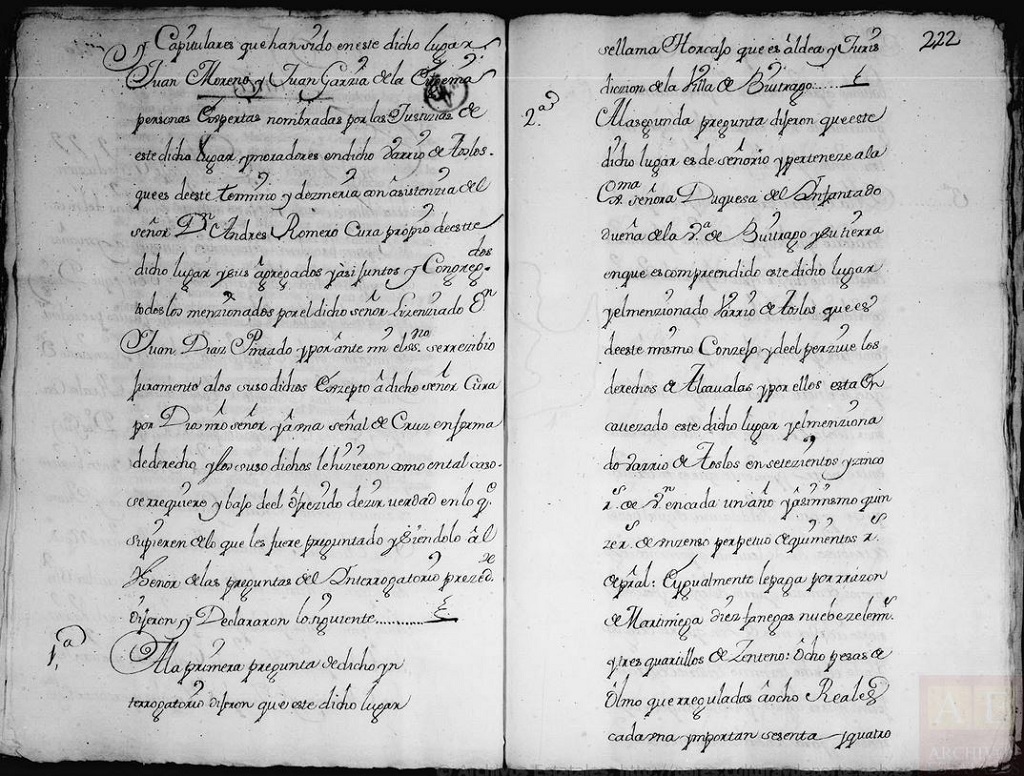 y Capitulares que han sido en este dicho lugar
Juan Moreno y Juan Garzia de la
personas Espertas nombradas por las Justizias de
este dicho lugar y moradores en dicho varrio de Aoslos.
que es de este termino y dezmeria con asistenzia del
señor Dn Andres Romero Cura propio de este
dicho lugar y sus agregados y asi juntos y Congregados
todos los menzionados por el dicho señor Lizenziado Dn
Juan Diaz Pintado y por ante mi el ssno. se rrezibio
juramento a los suso dichos Eszepto a dicho señor Cura
por Dios nro señor y a una señal de Cruz en forma
de derecho y los suso dichos le hizieron como en tal caso
se rrequiere y bajo de el ofrezido dezir verdad en lo qe.
supieren de lo que les fuere preguntado y siendolo al
thenor de las preguntas del Interrogatorio prezedte
dijeron y Declararon lo siguiente..........
1.a
A la primera pregunta de dicho yn
terrogatorio dijeron que este dicho lugar
222
se llama Horcajo que es aldea y Juris
dizion de la Villa de Buitrago......
2.a
A la segunda pregunta dijeron que este
dicho lugar es de señorio y perteneze a la
Exma. señora Duquesa del Infantado
dueña de la va. de Buitrago y su tierra
en que es compreendido este dicho lugar
y el menzionado varrio de Aoslos que es
de este mismo Conzejo y de el perzive los
derechos de Alcavalas y por ellos esta En
cavezado este dicho lugar y el menziona
do varrio de Aoslos en setezientos y zinco
rs. de vn. en cada un año y asimismo quin
ze rs. de zenso perpetuo de quinientos rs.
de pral: E ygualmente le paga por rrazon
de Martiniega diez fanegas nuebe zelems.
y tres quartillos de Zenteno: Ocho pesas de
Olmo que rreguladas a ocho Reales
cada una ymportan sesenta y quatro